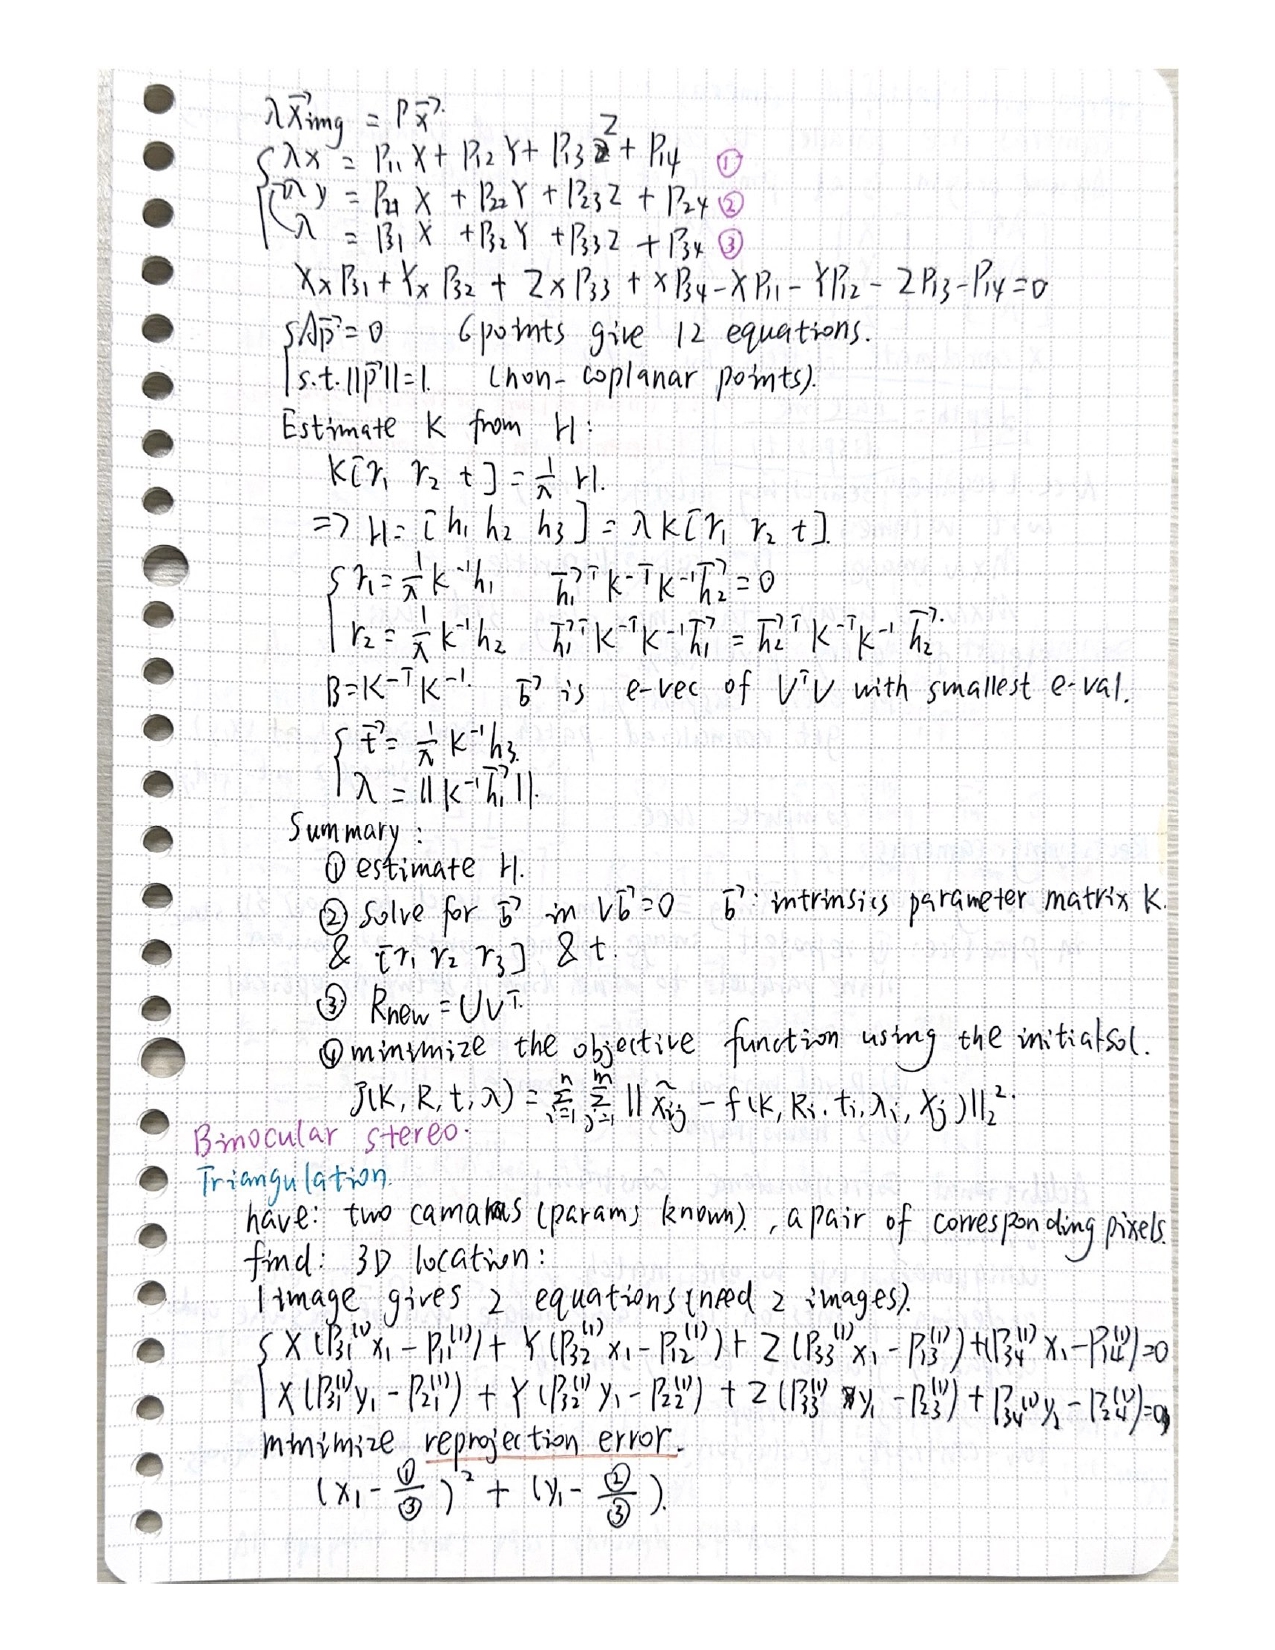 λx⃗img = Px⃗.
{ λx = P11 X + P12 Y + P13 Z + P14 ①
λy = P21 X + P22 Y + P23 Z + P24 ②
λ = P31 X + P32 Y + P33 Z + P34 ③
XxP31 + YxP32 + ZxP33 + xP34 - XP11 - YP12 - ZP13 - P14 = 0
{ Ap⃗ = 0 6 points give 12 equations.
s.t. ||p⃗|| = 1. (non-coplanar points).
Estimate K from H:
K[r1 r2 t] = 1/λ H.
=> H = [h1 h2 h3] = λK[r1 r2 t].
{ r1 = 1/λ K⁻¹h1 h⃗1ᵀ K⁻ᵀ K⁻¹ h⃗2 = 0
r2 = 1/λ K⁻¹h2 h⃗1ᵀ K⁻ᵀ K⁻¹ h⃗1 = h⃗2ᵀ K⁻ᵀ K⁻¹ h⃗2.
B = K⁻ᵀ K⁻¹. b⃗ is e-vec of VᵀV with smallest e-val.
{ t⃗ = 1/λ K⁻¹h3.
λ = ||K⁻¹h⃗1||.
Summary:
① estimate H.
② Solve for b⃗ in Vb⃗ = 0 b⃗: intrinsics parameter matrix K.
& [r1 r2 r3] & t.
③ Rnew = UVᵀ.
④ minimize the objective function using the initial sol.
J(K, R, t, λ) = Σ_{i=1}^{n} Σ_{j=1}^{m} ||x̃ij - f(K, Ri, ti, λi, Xj)||₂².
Binocular stereo.
Triangulation.
have: two camaras (params known), a pair of corresponding pixels.
find: 3D location:
1 image gives 2 equations (need 2 images).
{ X(P31⁽¹⁾x1 - P11⁽¹⁾) + Y(P32⁽¹⁾x1 - P12⁽¹⁾) + Z(P33⁽¹⁾x1 - P13⁽¹⁾) + (P34⁽¹⁾x1 - P14⁽¹⁾) = 0
X(P31⁽¹⁾y1 - P21⁽¹⁾) + Y(P32⁽¹⁾y1 - P22⁽¹⁾) + Z(P33⁽¹⁾y1 - P23⁽¹⁾) + P34⁽¹⁾y1 - P24⁽¹⁾) = 0
minimize reprojection error.
(x1 - ①/③)² + (y1 - ②/③).